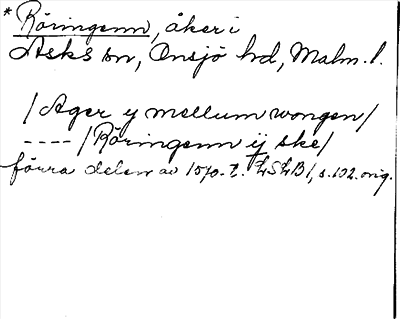 * Röringenn, åker i
Asks sn, Onsjö hd, Malm. l.
/Ager y mellum wongen/
---- /Röringenn ij ske/
förra delen av 1570-t. LSLB 1, s. 102. orig.